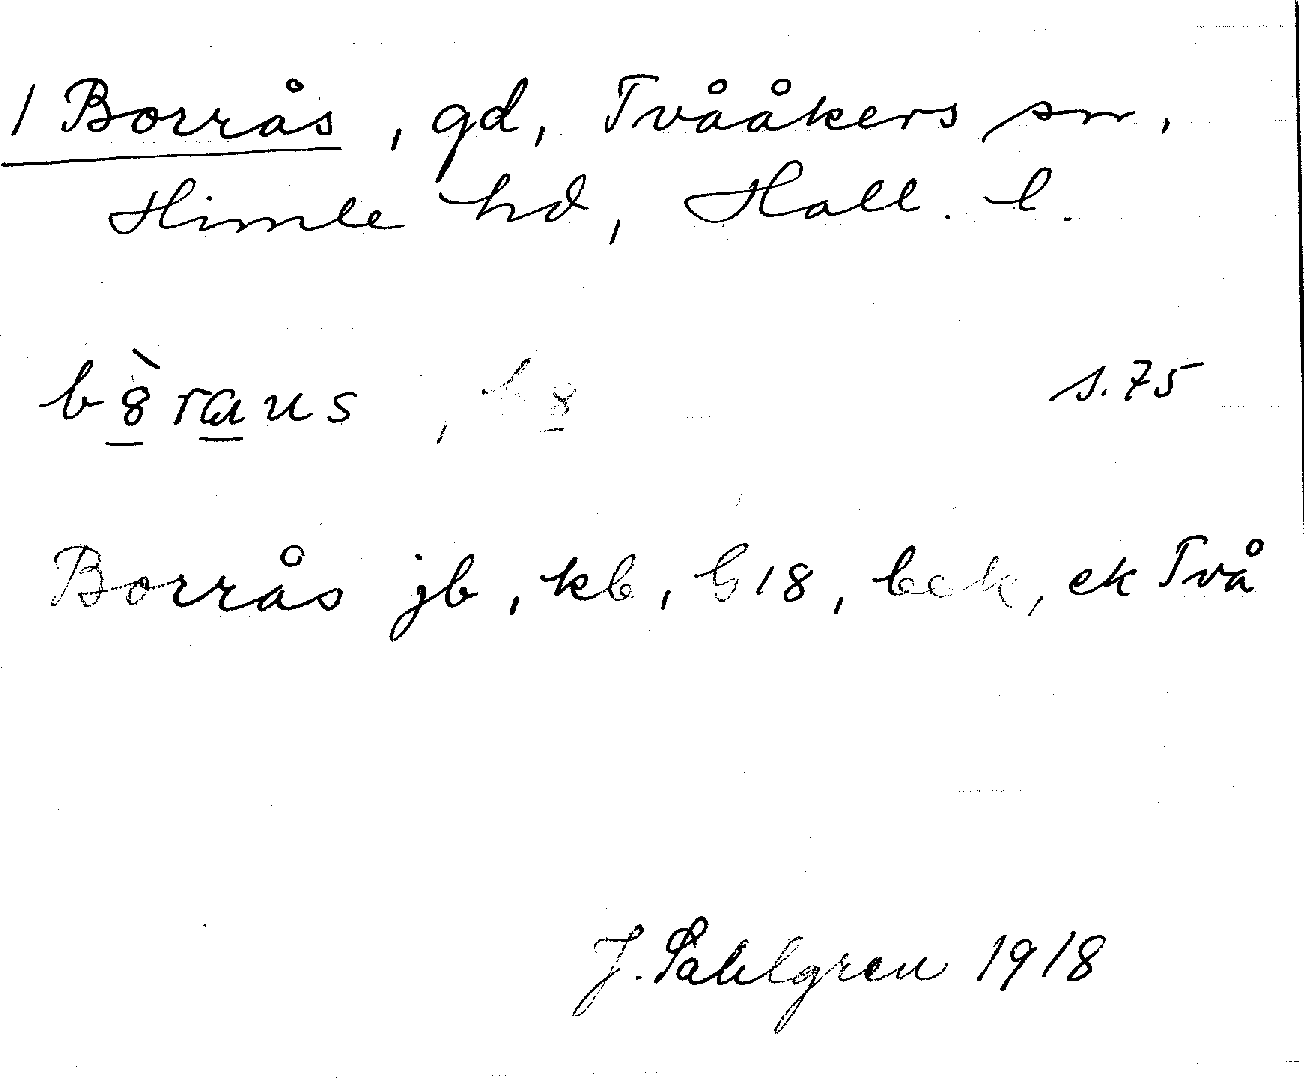 1 Borrås, gd, Tvååkers sn,
Himle hd, Hall. l.
b8̀raus, b8 s. 75
Borrås jb, kb, G18, bek, ek Två
J. Sahlgren 1918